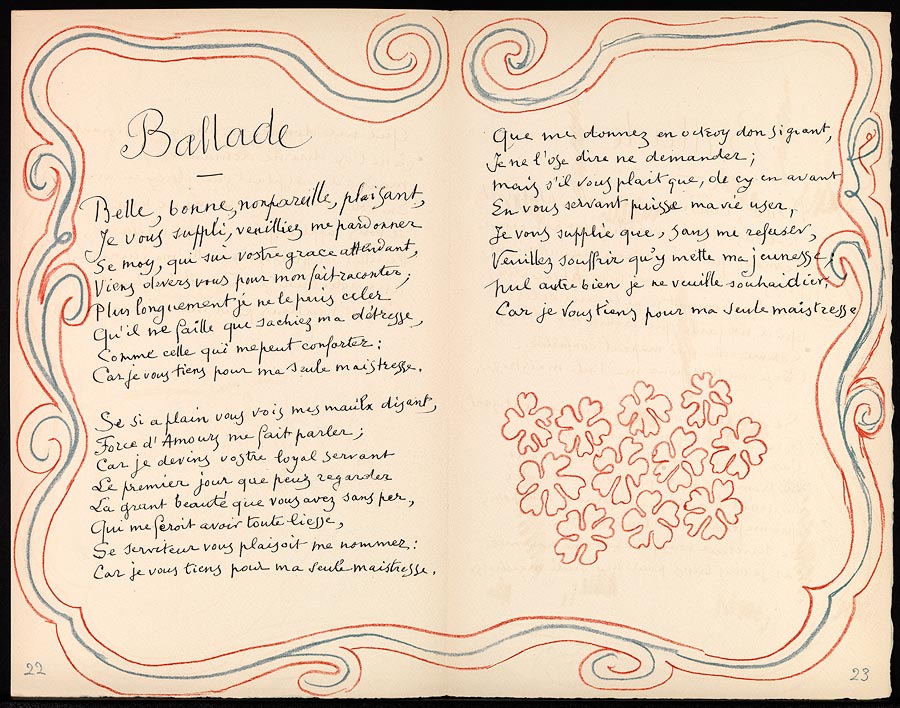 Ballade
Belle, bonne, nonpareille, plaisant,
Je vous suppli, veuilliez me pardonner
Se moy, qui sui vostre grace attendant,
Viens devers vous pour mon fait raconter;
Plus longuement je ne le puis celer
Qu'il ne faille que sachiez ma détresse,
Comme celle qui me peut conforter:
Car je vous tiens pour ma seule maistresse.
Se si a plain vous vois mes maulx disant,
Force d'Amours me fait parler;
Car je devins vostre loyal servant
Le premier jour que peuz regarder
La grant beauté que vous avez sans per,
Qui me feroit avoir toute liesse,
Se serviteur vous plaisoit me nommer:
Car je vous tiens pour ma seule maistresse.
22
Que me donnez en octroy don si grant,
Je ne l'ose dire ne demander;
Mais s'il vous plait que, de cy en avant
En vous servant puisse ma vie user,
Je vous supplie que, sans me refuser,
Veuillez souffrir qu'y mette ma jeunesse;
Nul autre bien je ne veuille souhaidier,
Car je vous tiens pour ma seule maistresse
23